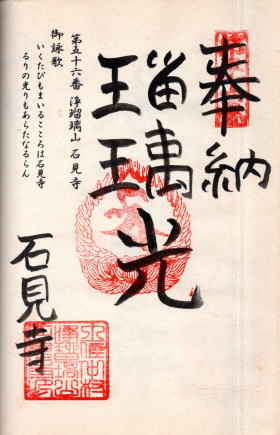 奉納
瑠璃光
石見寺
第五十六番 浄瑠璃山 石見寺
御詠歌
いくたびもまいるこころは石見寺
るりの光りもあらたなるらん